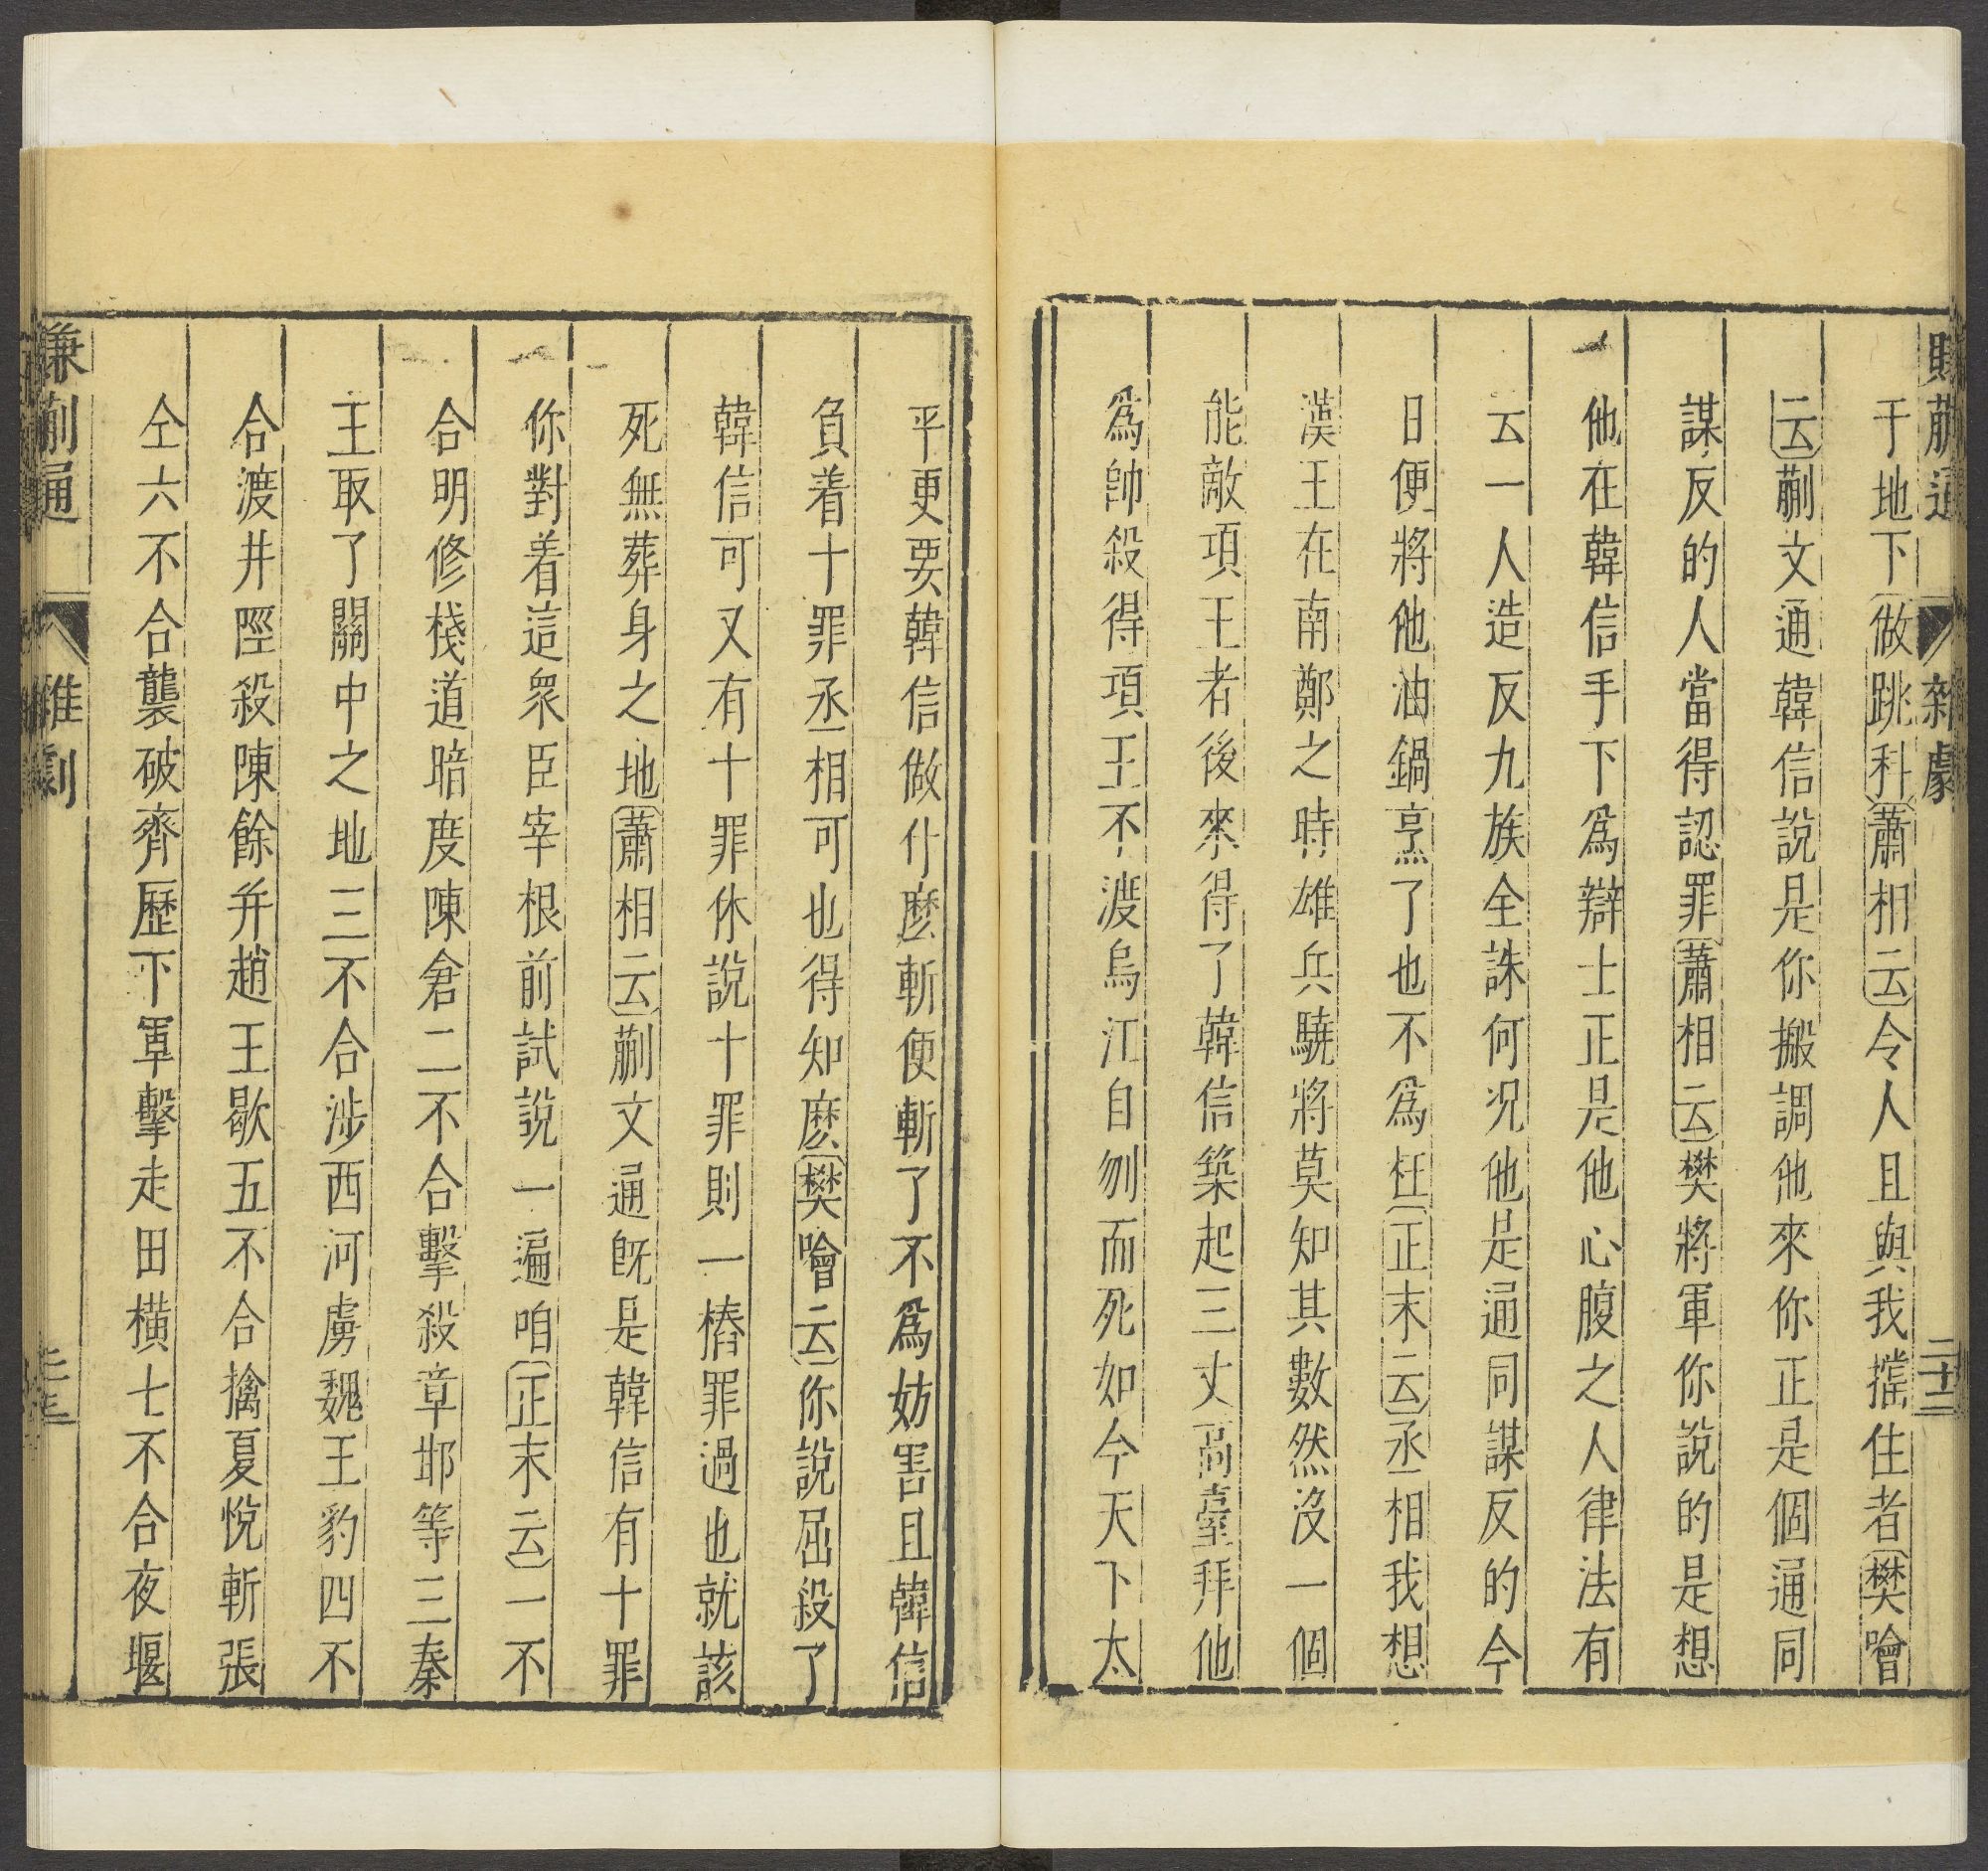 賺蒯通　雜劇　二十二
于地下做跳科蕭相云令人且與我攩住者樊噲
云蒯文通韓信說是你搬調他來你正是個通同
謀反的人當得認罪蕭相云樊將軍你說的是想
他在韓信手下爲辯士正是他心腹之人律法有
云一人造反九族全誅何况他是通同謀反的今
日便將他油鍋烹了也不爲枉正末云丞相我想
漢王在南鄭之時雄兵驍將莫知其數然沒一個
能敵項王者後來得了韓信築起三丈高臺拜他
爲帥殺得項王不渡烏江自刎而死如今天下太
平更要韓信做什麽斬便斬了不爲妨害且韓信
負着十罪丞相可也得知麽樊噲云你說屈殺了
韓信可又有十罪休說十罪則一樁罪過也就該
死無葬身之地蕭相云蒯文通旣是韓信有十罪
你對着這衆臣宰根前試說一遍咱正末云一不
合明修棧道暗度陳倉二不合擊殺章邯等三秦
王取了關中之地三不合涉西河虜魏王豹四不
合渡井陘殺陳餘并趙王歇五不合擒夏悅斬張
仝六不合襲破齊歷下軍擊走田橫七不合夜堰
賺蒯通　雜劇